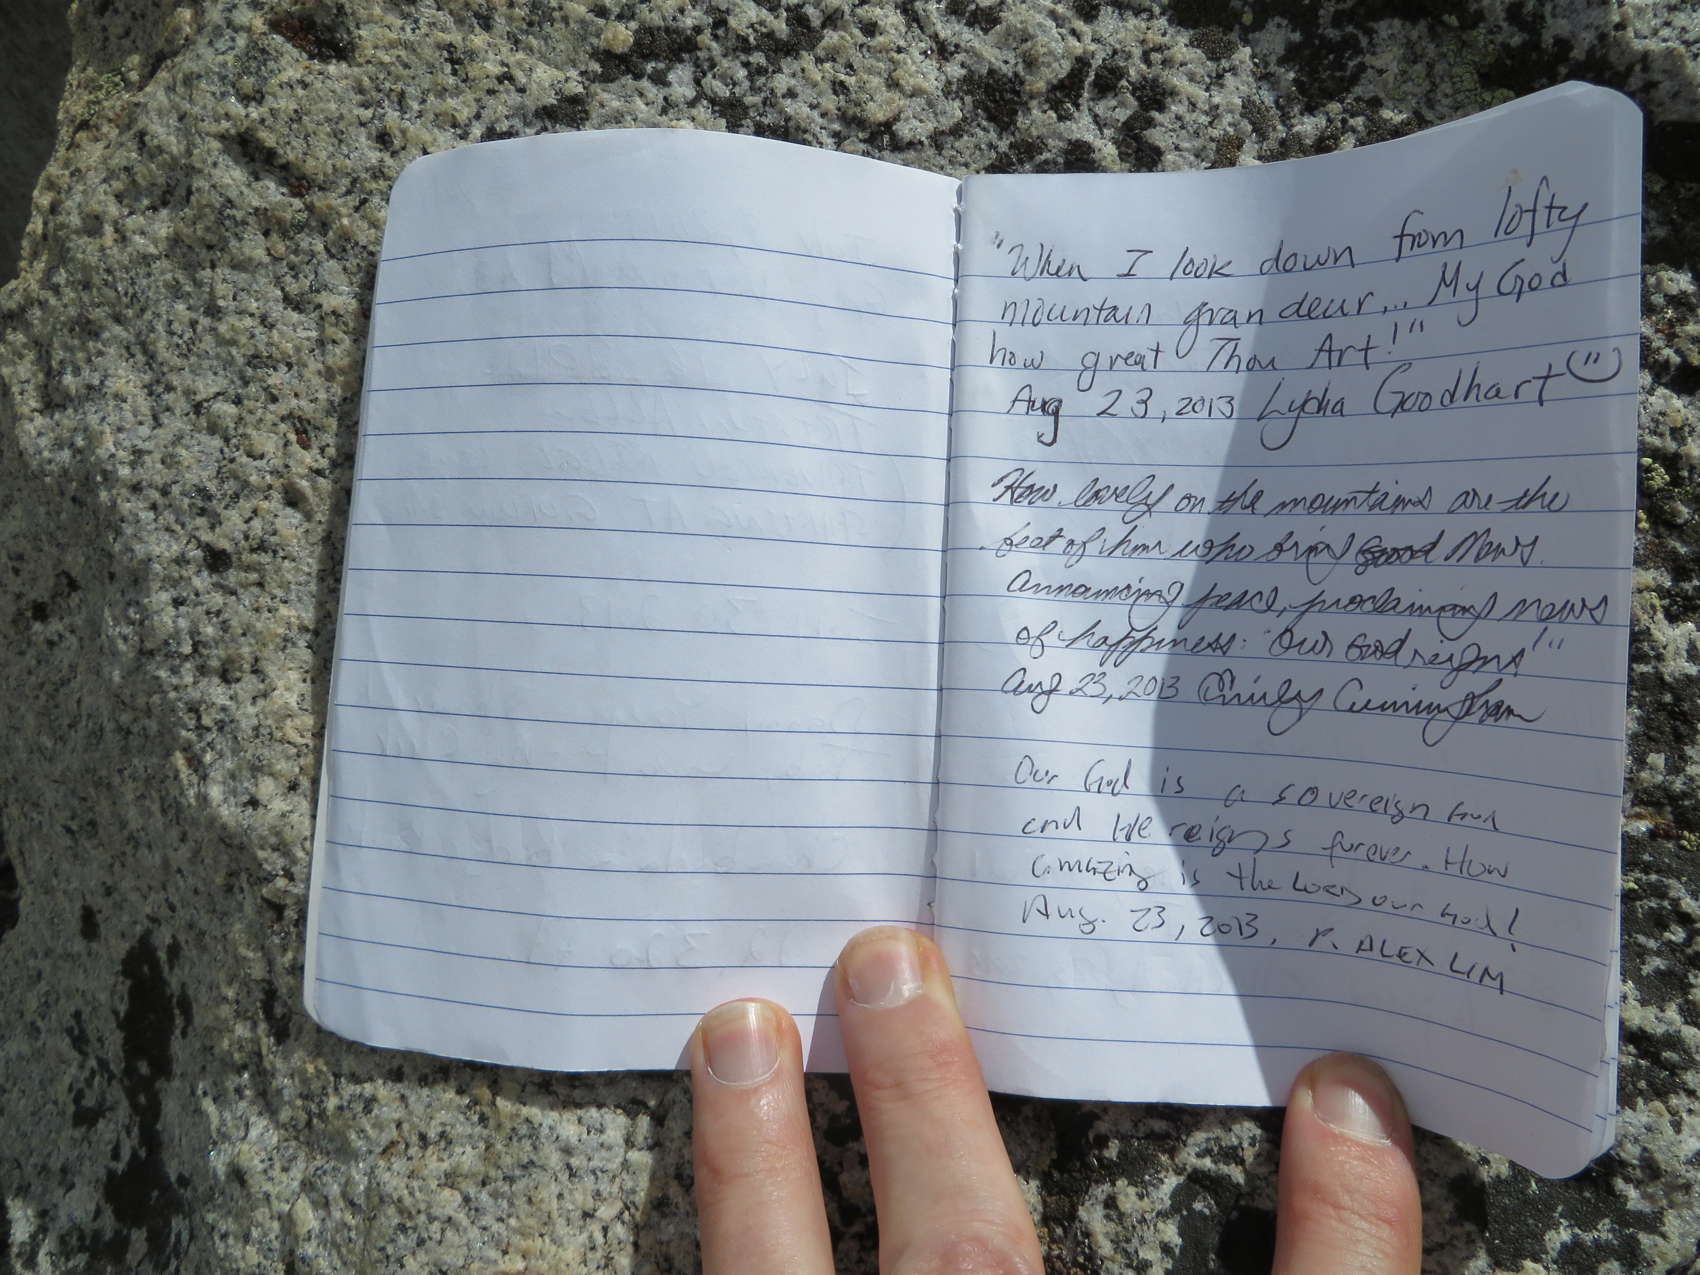 "When I look down from lofty
mountain grandeur... My God
how great Thou Art!"
Aug 23, 2013 Lydia Goodhart
How lovely on the mountains are the
feet of him who bring good News.
Announcing peace, proclaiming news
of happiness: "Our God reigns!"
Aug 23, 2013 Emily Cunningham
Our God is a sovereign God
and He reigns forever. How
amazing is the our God!
Aug. 23, 2013. P. ALEX LIM